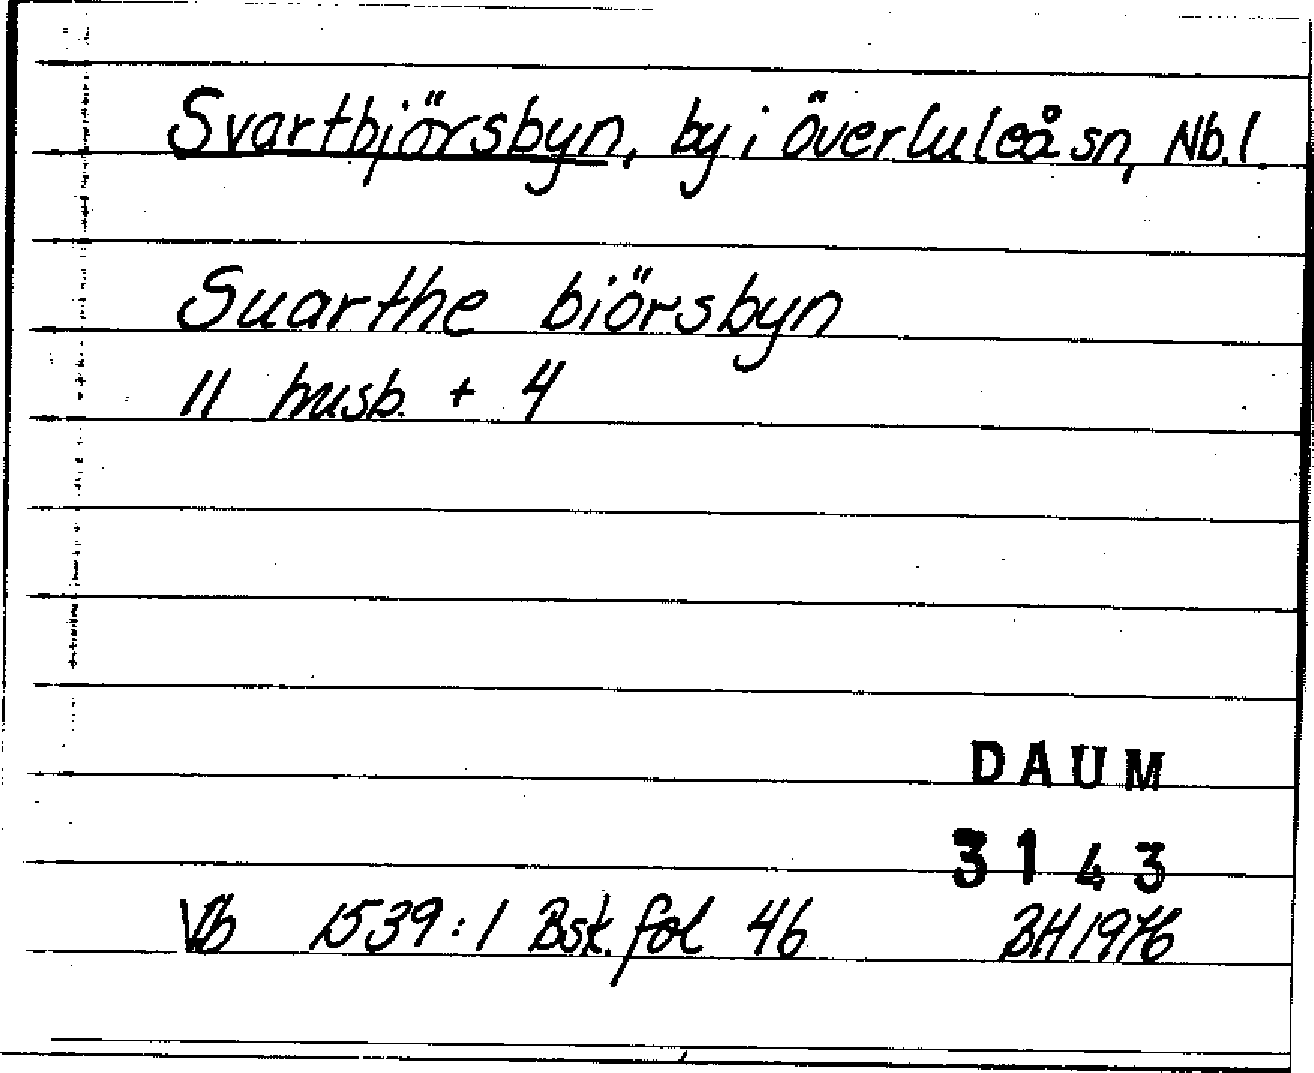 Svartbjörsbyn, by i överluleå sn, Nb.l.
Suarthe biörsbyn
11 husb. + 4
DAUM
3143
Vb 1539:1 Bsk. fol 46 BH 1976